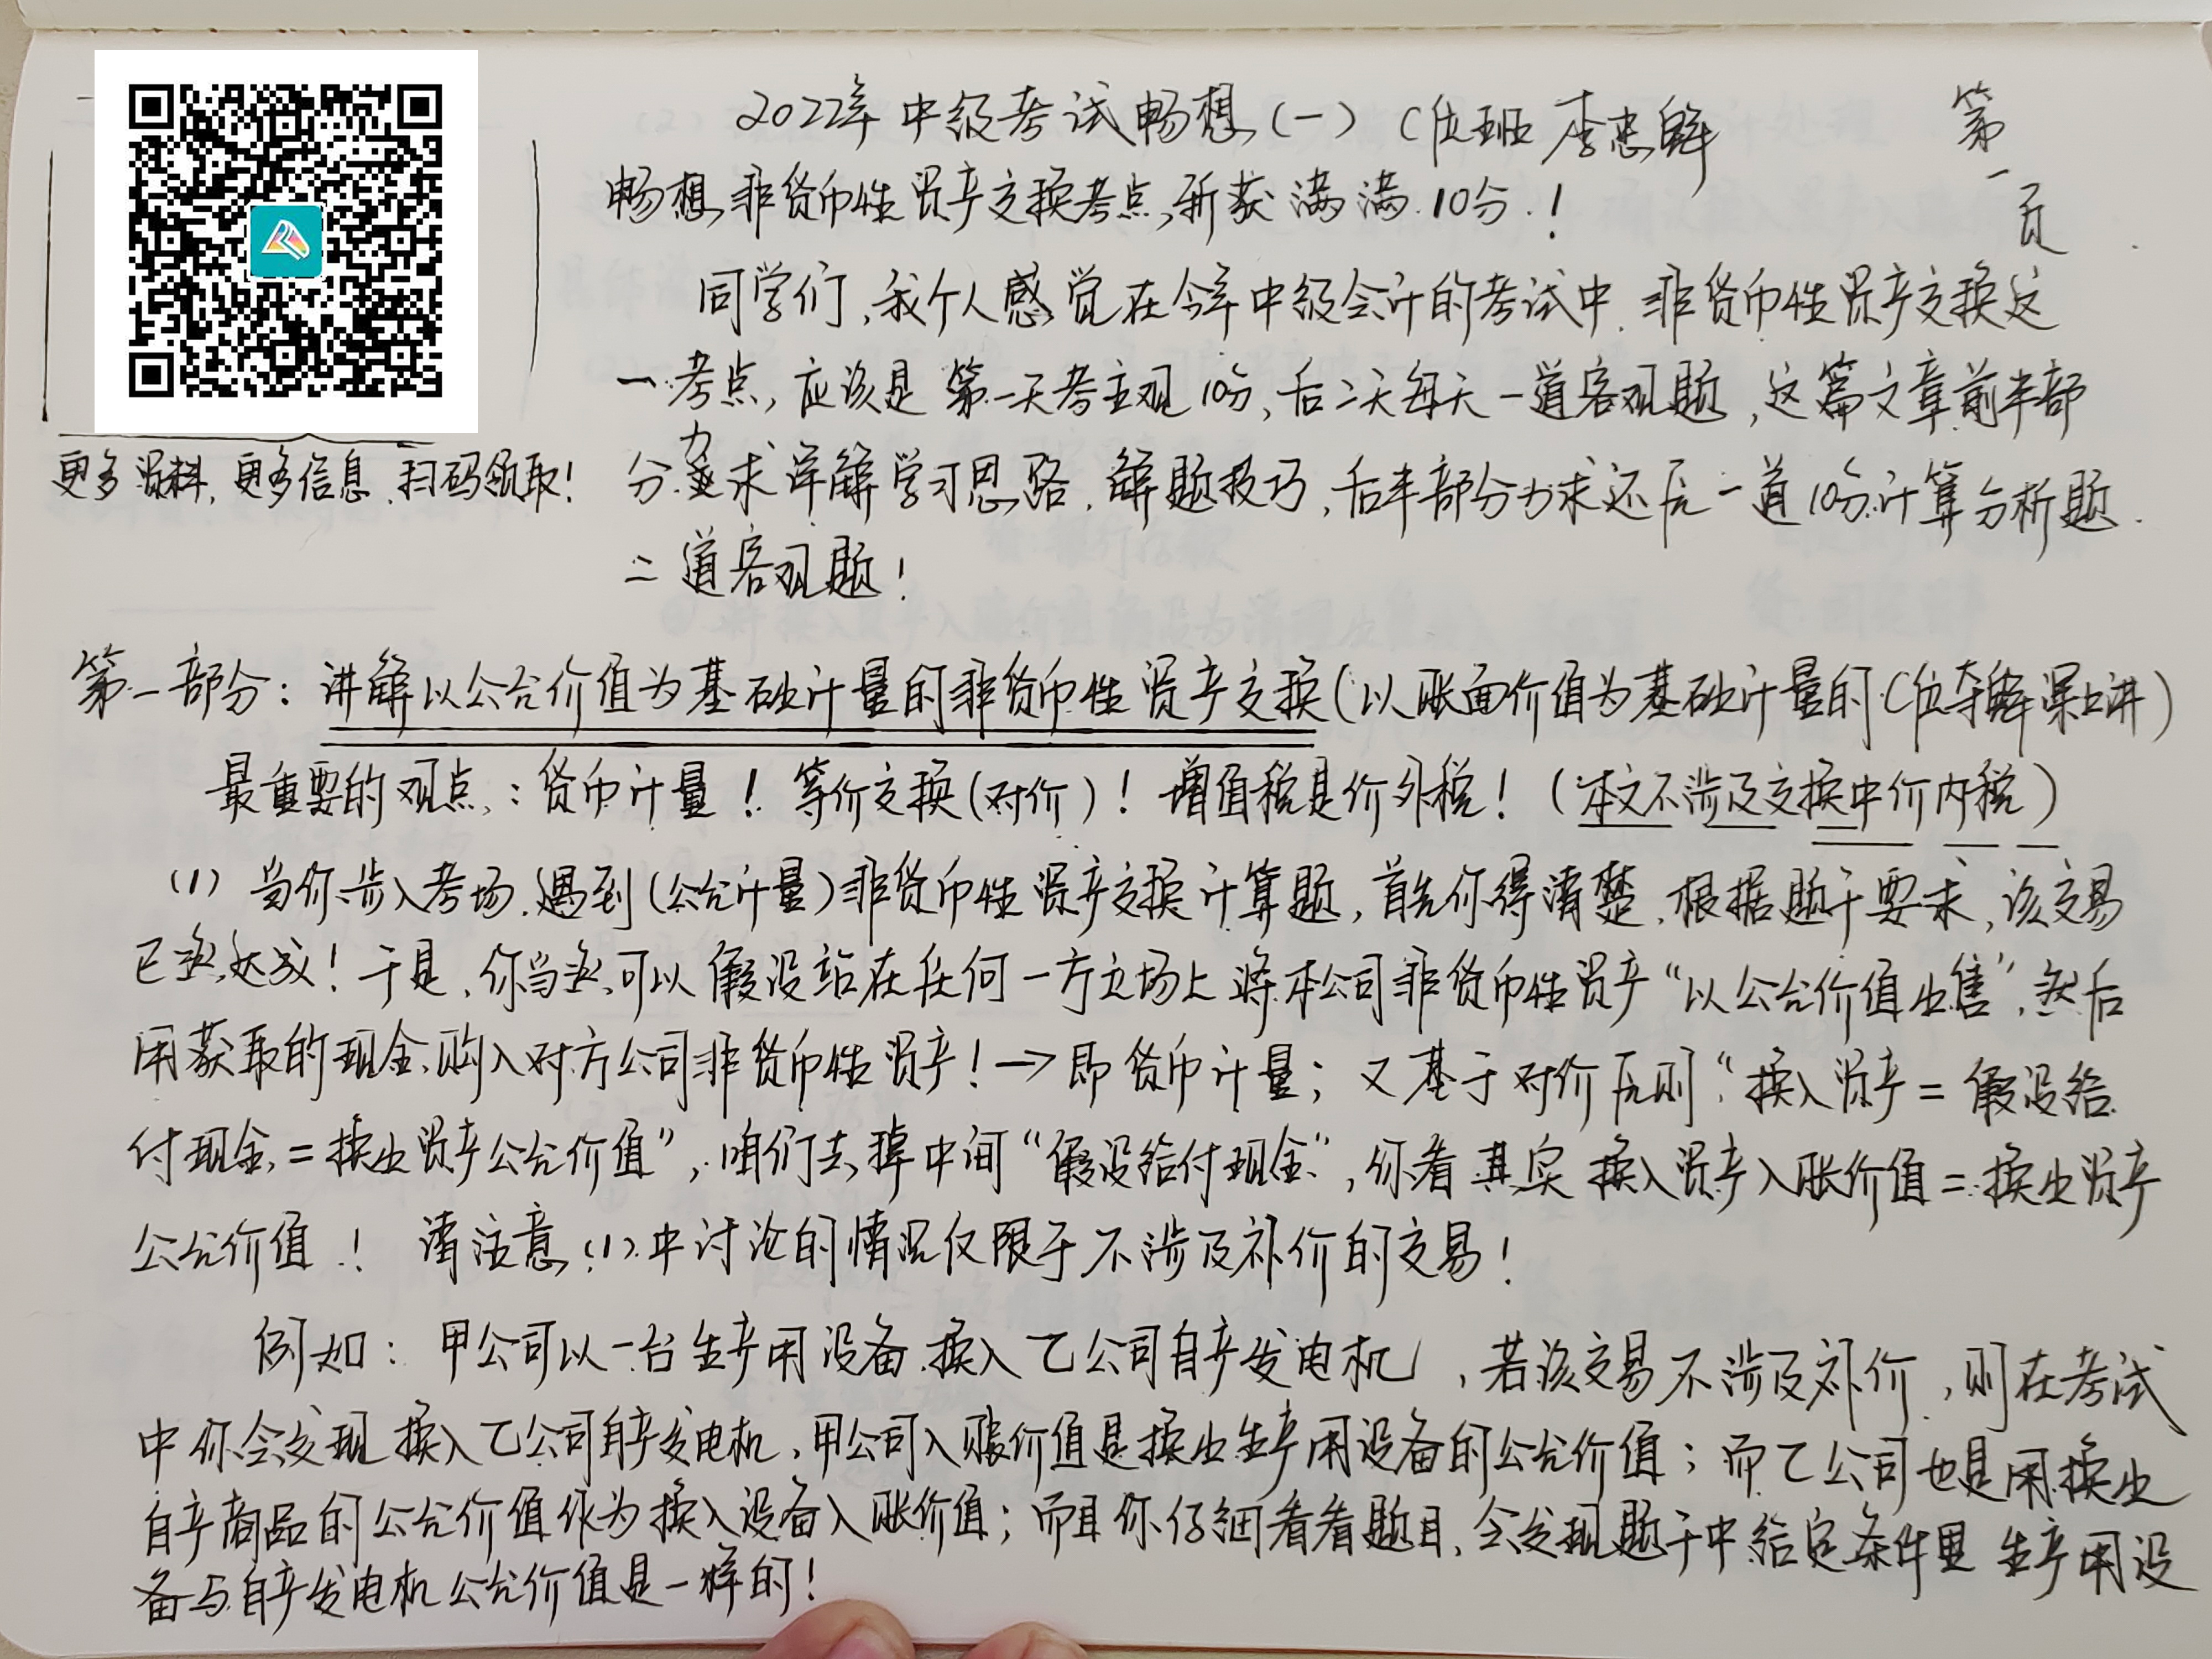 2022年中级考试畅想(一) C位班 李忠魁
第一页
畅想非货币性资产交换考点,斩获满满10分!
同学们,我个人感觉在今年中级会计的考试中,非货币性资产交换这
一考点,应该是第一天考主观10分,后二天每天一道客观题,这篇文章前半部
分力求详解学习思路,解题技巧,后半部分力求还原一道10分计算分析题
二道客观题!
更多资料,更多信息,扫码领取!
第一部分:讲解以公允价值为基础计量的非货币性资产交换(以账面价值为基础计量的C位夺魁课上讲)
最重要的观点:货币计量!等价交换(对价)!增值税是价外税!(本文不涉及交换中价内税)
(1)当你步入考场,遇到(公允计量)非货币性资产交换计算题,首先你得清楚,根据题干要求,该交易
已然达成!于是,你当然可以假设站在任何一方立场上将本公司非货币性资产“以公允价值出售”,然后
用获取的现金,购入对方公司非货币性资产!→即货币计量;又基于对价原则“换入资产=假设给
付现金=换出资产公允价值”,咱们去掉中间“假设给付现金”,你看其实换入资产入账价值=换出资产
公允价值!请注意(1)中讨论的情况仅限于不涉及补价的交易!
例如:甲公司以一台生产用设备换入乙公司自产发电机,若该交易不涉及补价,则在考试
中你会发现换入乙公司自产发电机,甲公司入账价值是换出生产用设备的公允价值;而乙公司也是用换出
自产商品的公允价值作为换入设备入账价值;而且你仔细看看题目,会发现题干中给定条件里生产用设
备与自产发电机公允价值是一样的!